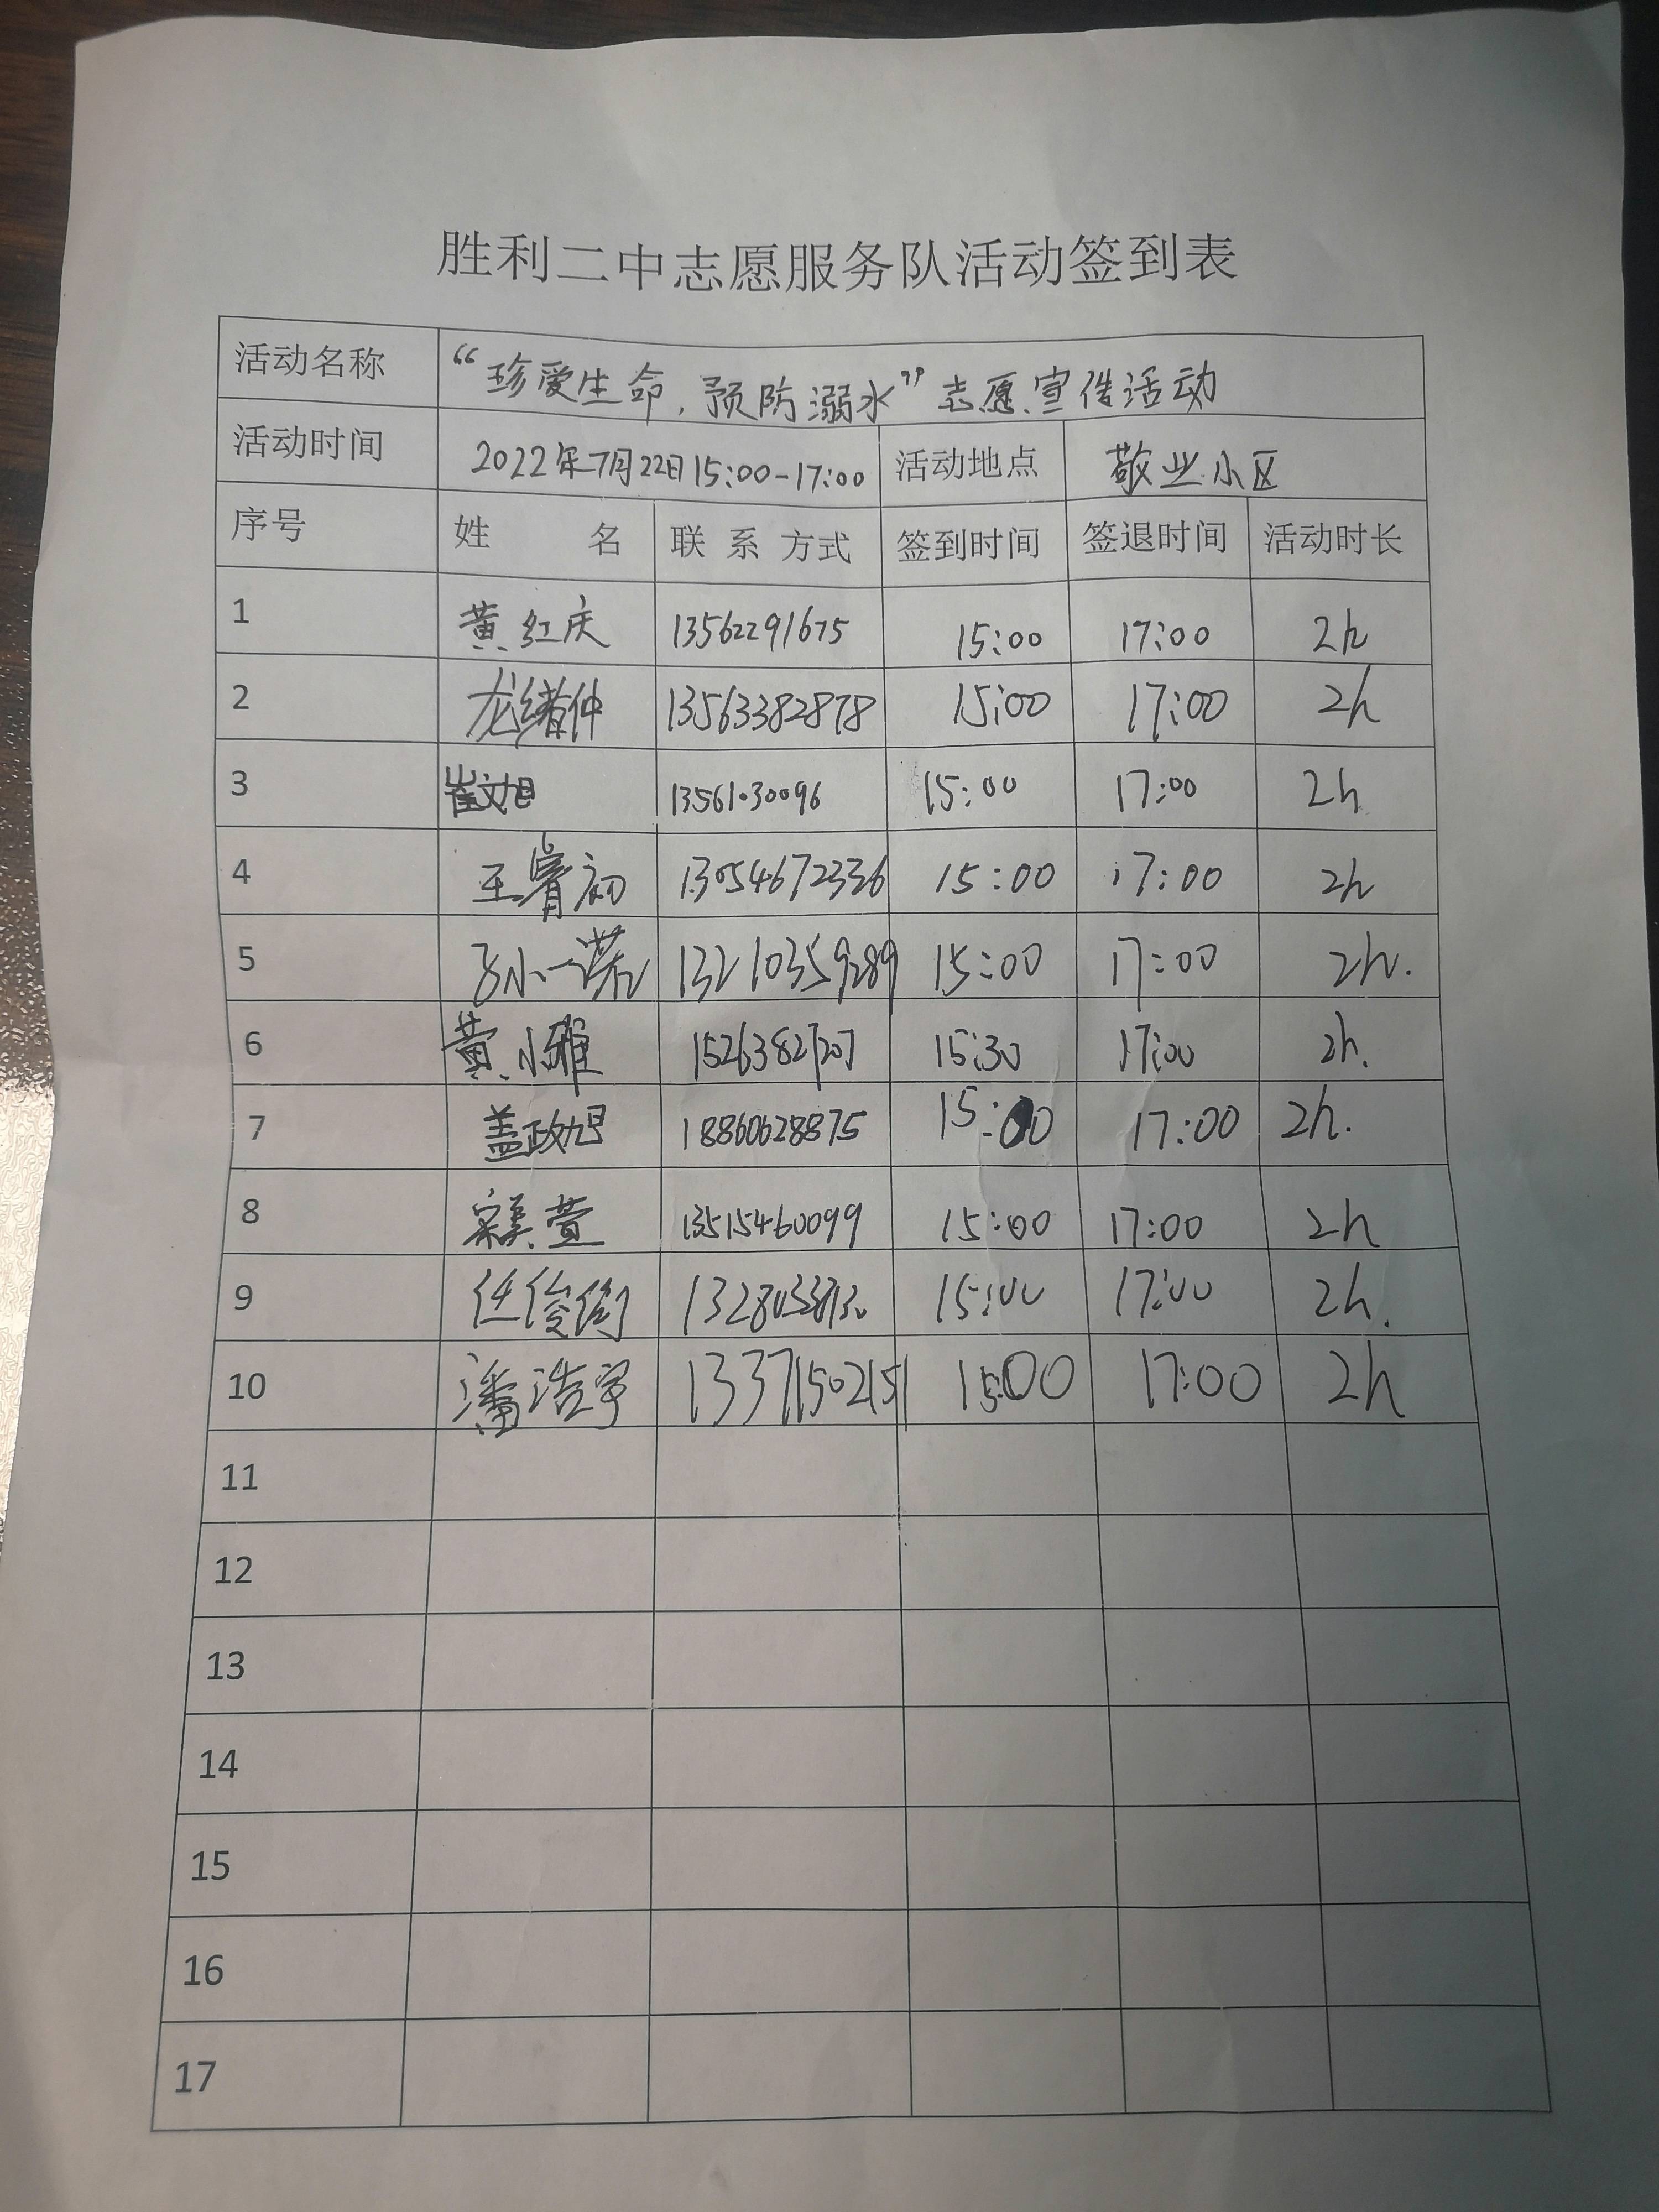 胜利二中志愿服务队活动签到表
活动名称 “珍爱生命，预防溺水”志愿宣传活动
活动时间 2022年7月22日15:00-17:00 活动地点 敬业小区
序号 姓 名 联 系 方式 签到时间 签退时间 活动时长
1 黄红庆 13562291675 15:00 17:00 2h
2 龙绪仲 13563382878 15:00 17:00 2h
3 崔文旭 15:00 17:00 2h
4 王睿初 13054672336 15:00 17:00 2h
5 孙小一诺 13210359289 15:00 17:00 2h.
6 黄小雅 15263827207 15:30 17:00 2h.
7 盖政旭 18860628875 15:00 17:00 2h.
8 萱 13515460099 15:00 17:00 2h
9 任俊 15:00 17:00 2h.
10 潘浩宇 13371502151 15:00 17:00 2h
11
12
13
14
15
16
17